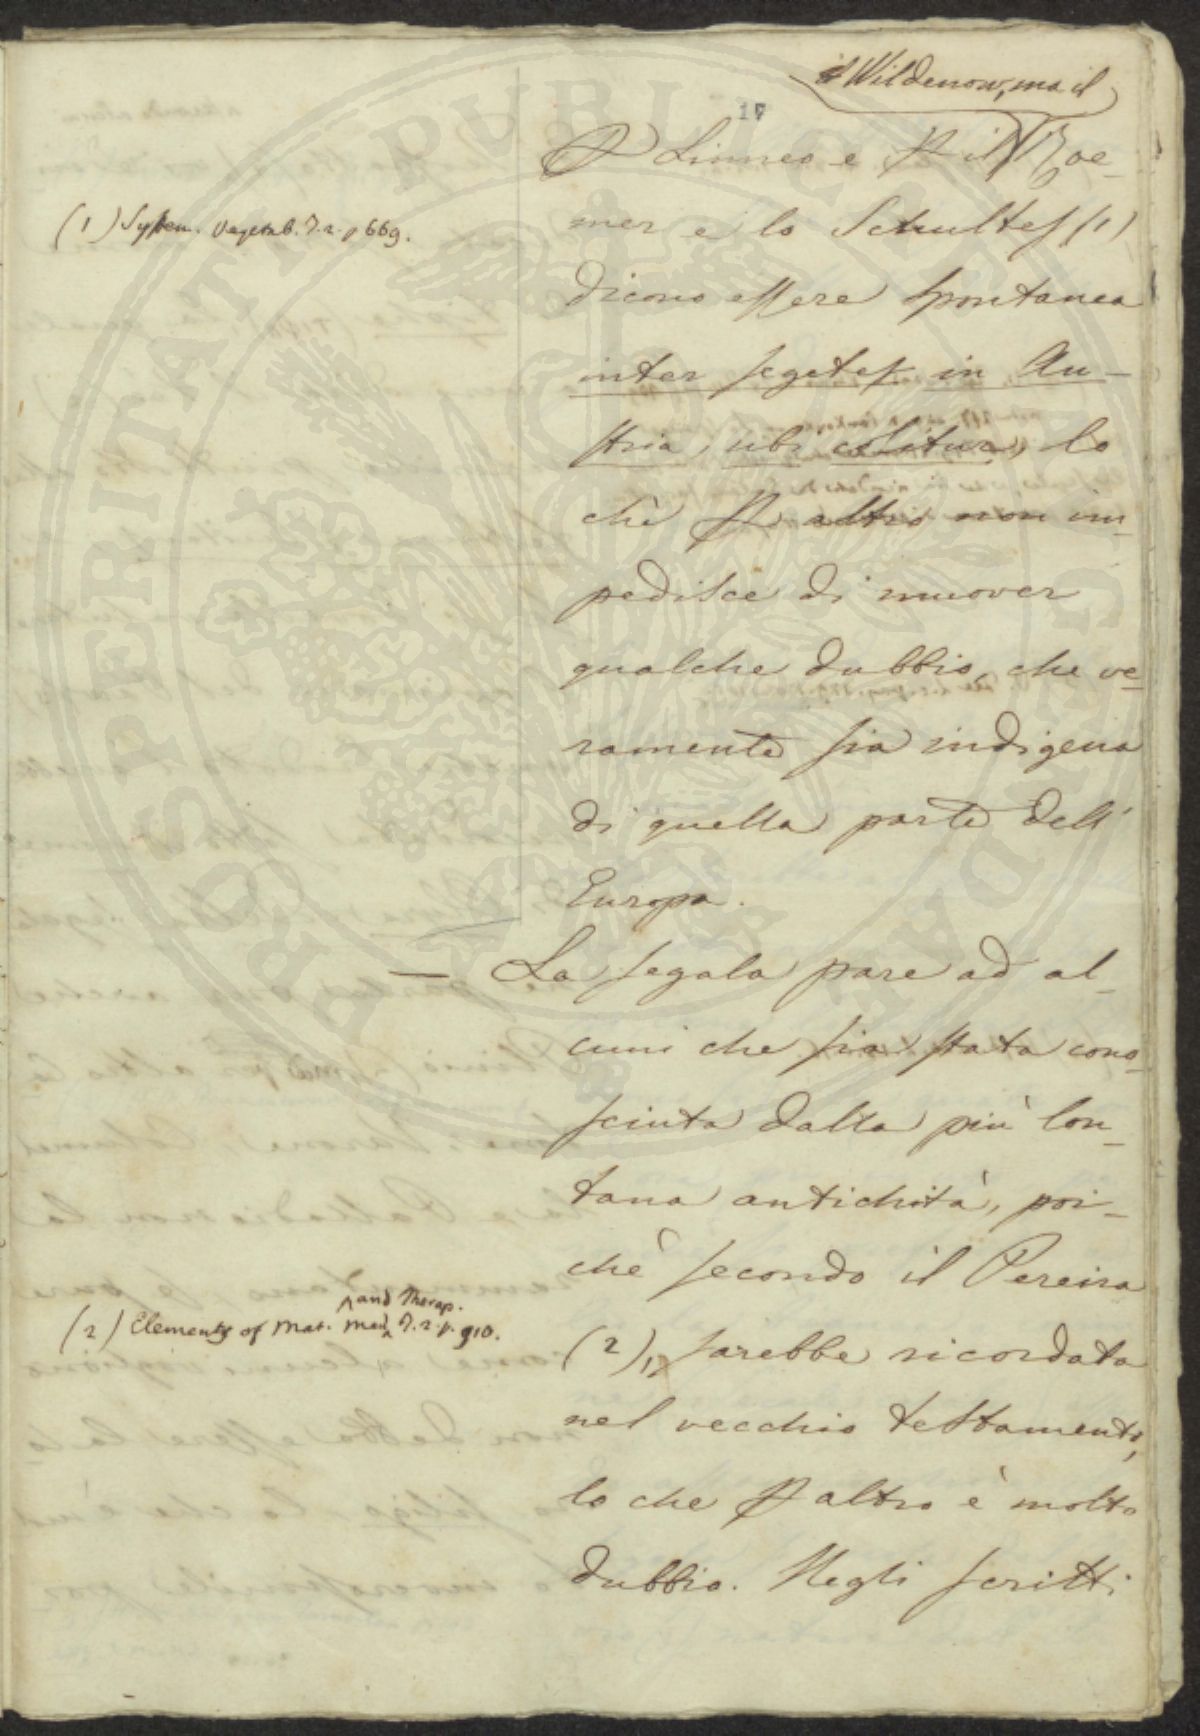 il Wildenow, ma il
17
Linneo e il Roe-
mer e lo Schultes (1)
dicono essere spontanea
inter segetes in Au-
stria, ubi colitur, lo
chè altro non im-
pedisce di muover
qualche dubbio, che ve-
ramente sia indigena
di quella parte dell'
Europa.
— La segala pare ad al-
cuni che sia stata cono-
sciuta dalla più lon-
tana antichità, poi-
chè secondo il Pereira
(2), sarebbe ricordata
nel vecchio testamento,
lo che altro è molto
dubbio. Negli scritti
(1) System. Vegetab. T. 2. p 669.
and Therap.
(2) Elements of Mat. Med. T. 2. p. 910.
PROSPERITATI PUBLICAE